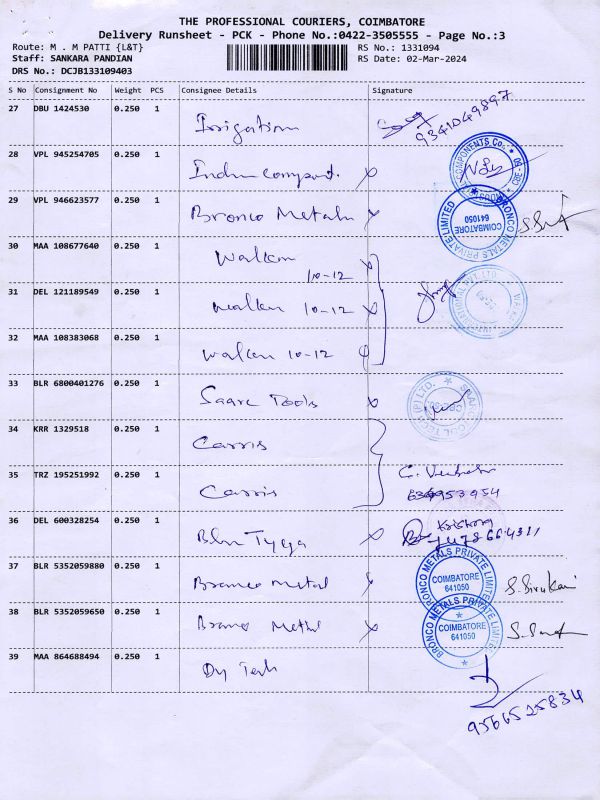 THE PROFESSIONAL COURIERS, COIMBATORE
Delivery Runsheet - PCK - Phone No.:0422-3505555 - Page No.:3
Route: M . M PATTI {L&T} RS No.: 1331094
Staff: SANKARA PANDIAN RS Date: 02-Mar-2024
DRS No.: DCJB133109403
S No Consignment No Weight PCS Consignee Details Signature
27 DBU 1424530 0.250 1 Irrigation 9341049897
28 VPL 945254705 0.250 1 COMPONENTS Co.
29 VPL 946623577 0.250 1 Bronco Metals BRONCO METALS PRIVATE LIMITED COIMBATORE 641050
30 MAA 108677640 0.250 1 Walken 10-12
31 DEL 121189549 0.250 1 Walken 10-12
32 MAA 108383068 0.250 1 Walken 10-12
33 BLR 6800401276 0.250 1 Saarc Tools
34 KRR 1329518 0.250 1 Carris
35 TRZ 195251992 0.250 1 Carris
36 DEL 600328254 0.250 1
37 BLR 5352059880 0.250 1 Bronco Metal BRONCO METALS PRIVATE LIMITED COIMBATORE 641050
38 BLR 5352059650 0.250 1 BRONCO METALS PRIVATE LIMITED COIMBATORE 641050
39 MAA 864688494 0.250 1 Dy Tech
9566525834